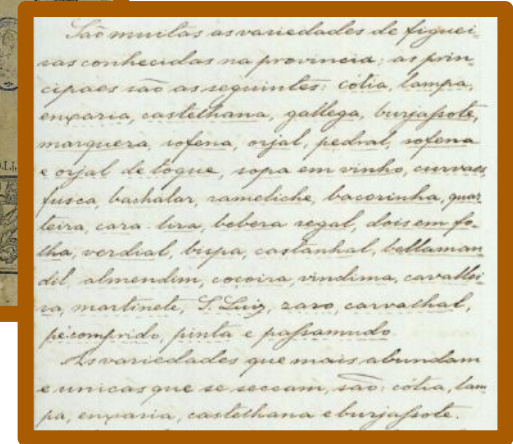 São muitas as variedades de figuei-
ras conhecidas na provincia; as prin-
cipaes são as seguintes: côtia, lampa,
enxaria, castelhana, gallega, burjassote,
marquera, rofena, orjal, pedral, rofena
e orjal de toque, sopa em vinho, curvaes,
fusca, bachalar, rameliche, bacorinha, quar
teira, cara-lira, bebera regal, dois em fo-
lha, verdial, bupa, castanhal, bellaman
dil, almendim, cocoira, vindima, cavallei-
ra, martinete, S. Luiz, zaro, carvalhal,
pécomprido, pinta e passamudo.
As variedades que mais abundam
e unicas que se seccam, são: côtia, lam-
pa, enxaria, castelhana e burjassote.